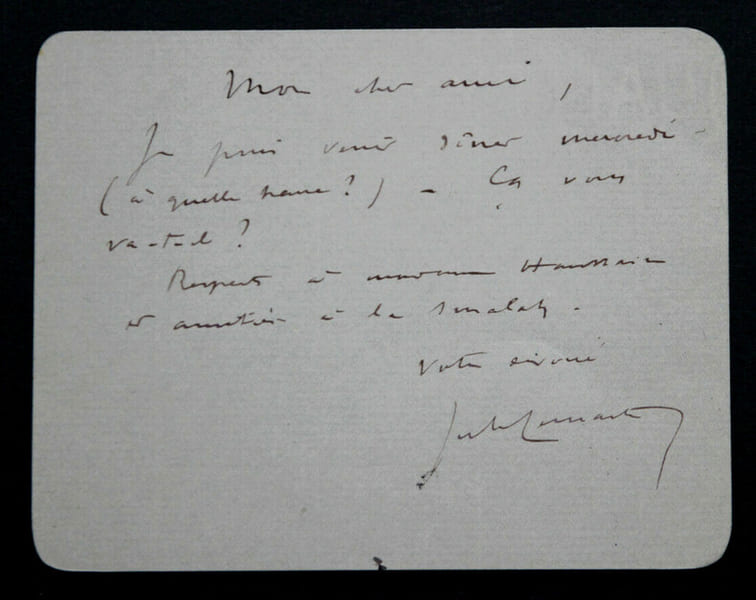 Mon cher ami,
Je puis venir dîner mercredi -
(à quelle heure ?) - Ça vous
va-t-il ?
Respects à madame Haussaire
et amitiés à la smalah.
Votre dévoué
Jules Lemaitre